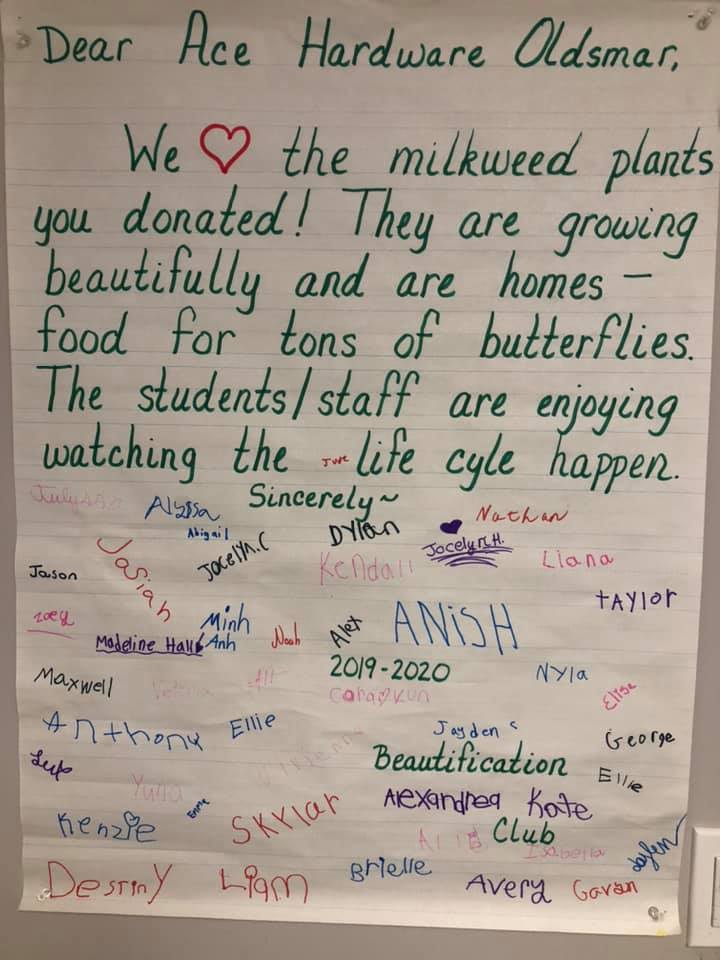 Dear Ace Hardware Oldsmar,
We ♥ the milkweed plants
you donated! They are growing
beautifully and are homes –
food for tons of butterflies.
The students/staff are enjoying
watching the life cyle happen.
Sincerely~
Alyssa
Abigail
Dylan
Nathan
Josiah
Jocelyn.C
Kendall
Jocelyn H.
Liana
Jason
Taylor
Zoey
Minh
Anh
Madeline Hall
Noah
Alex
ANiSH
2019-2020
Nyla
Maxwell
Elise
Anthony
Ellie
Jayden
George
Beautification
Ellie
Yuna
Alexandrea
Kate
Kenzie
Skylar
Allie
Club
Isabella
Jaylen
Destiny
Liam
Brielle
Avery
Gavan